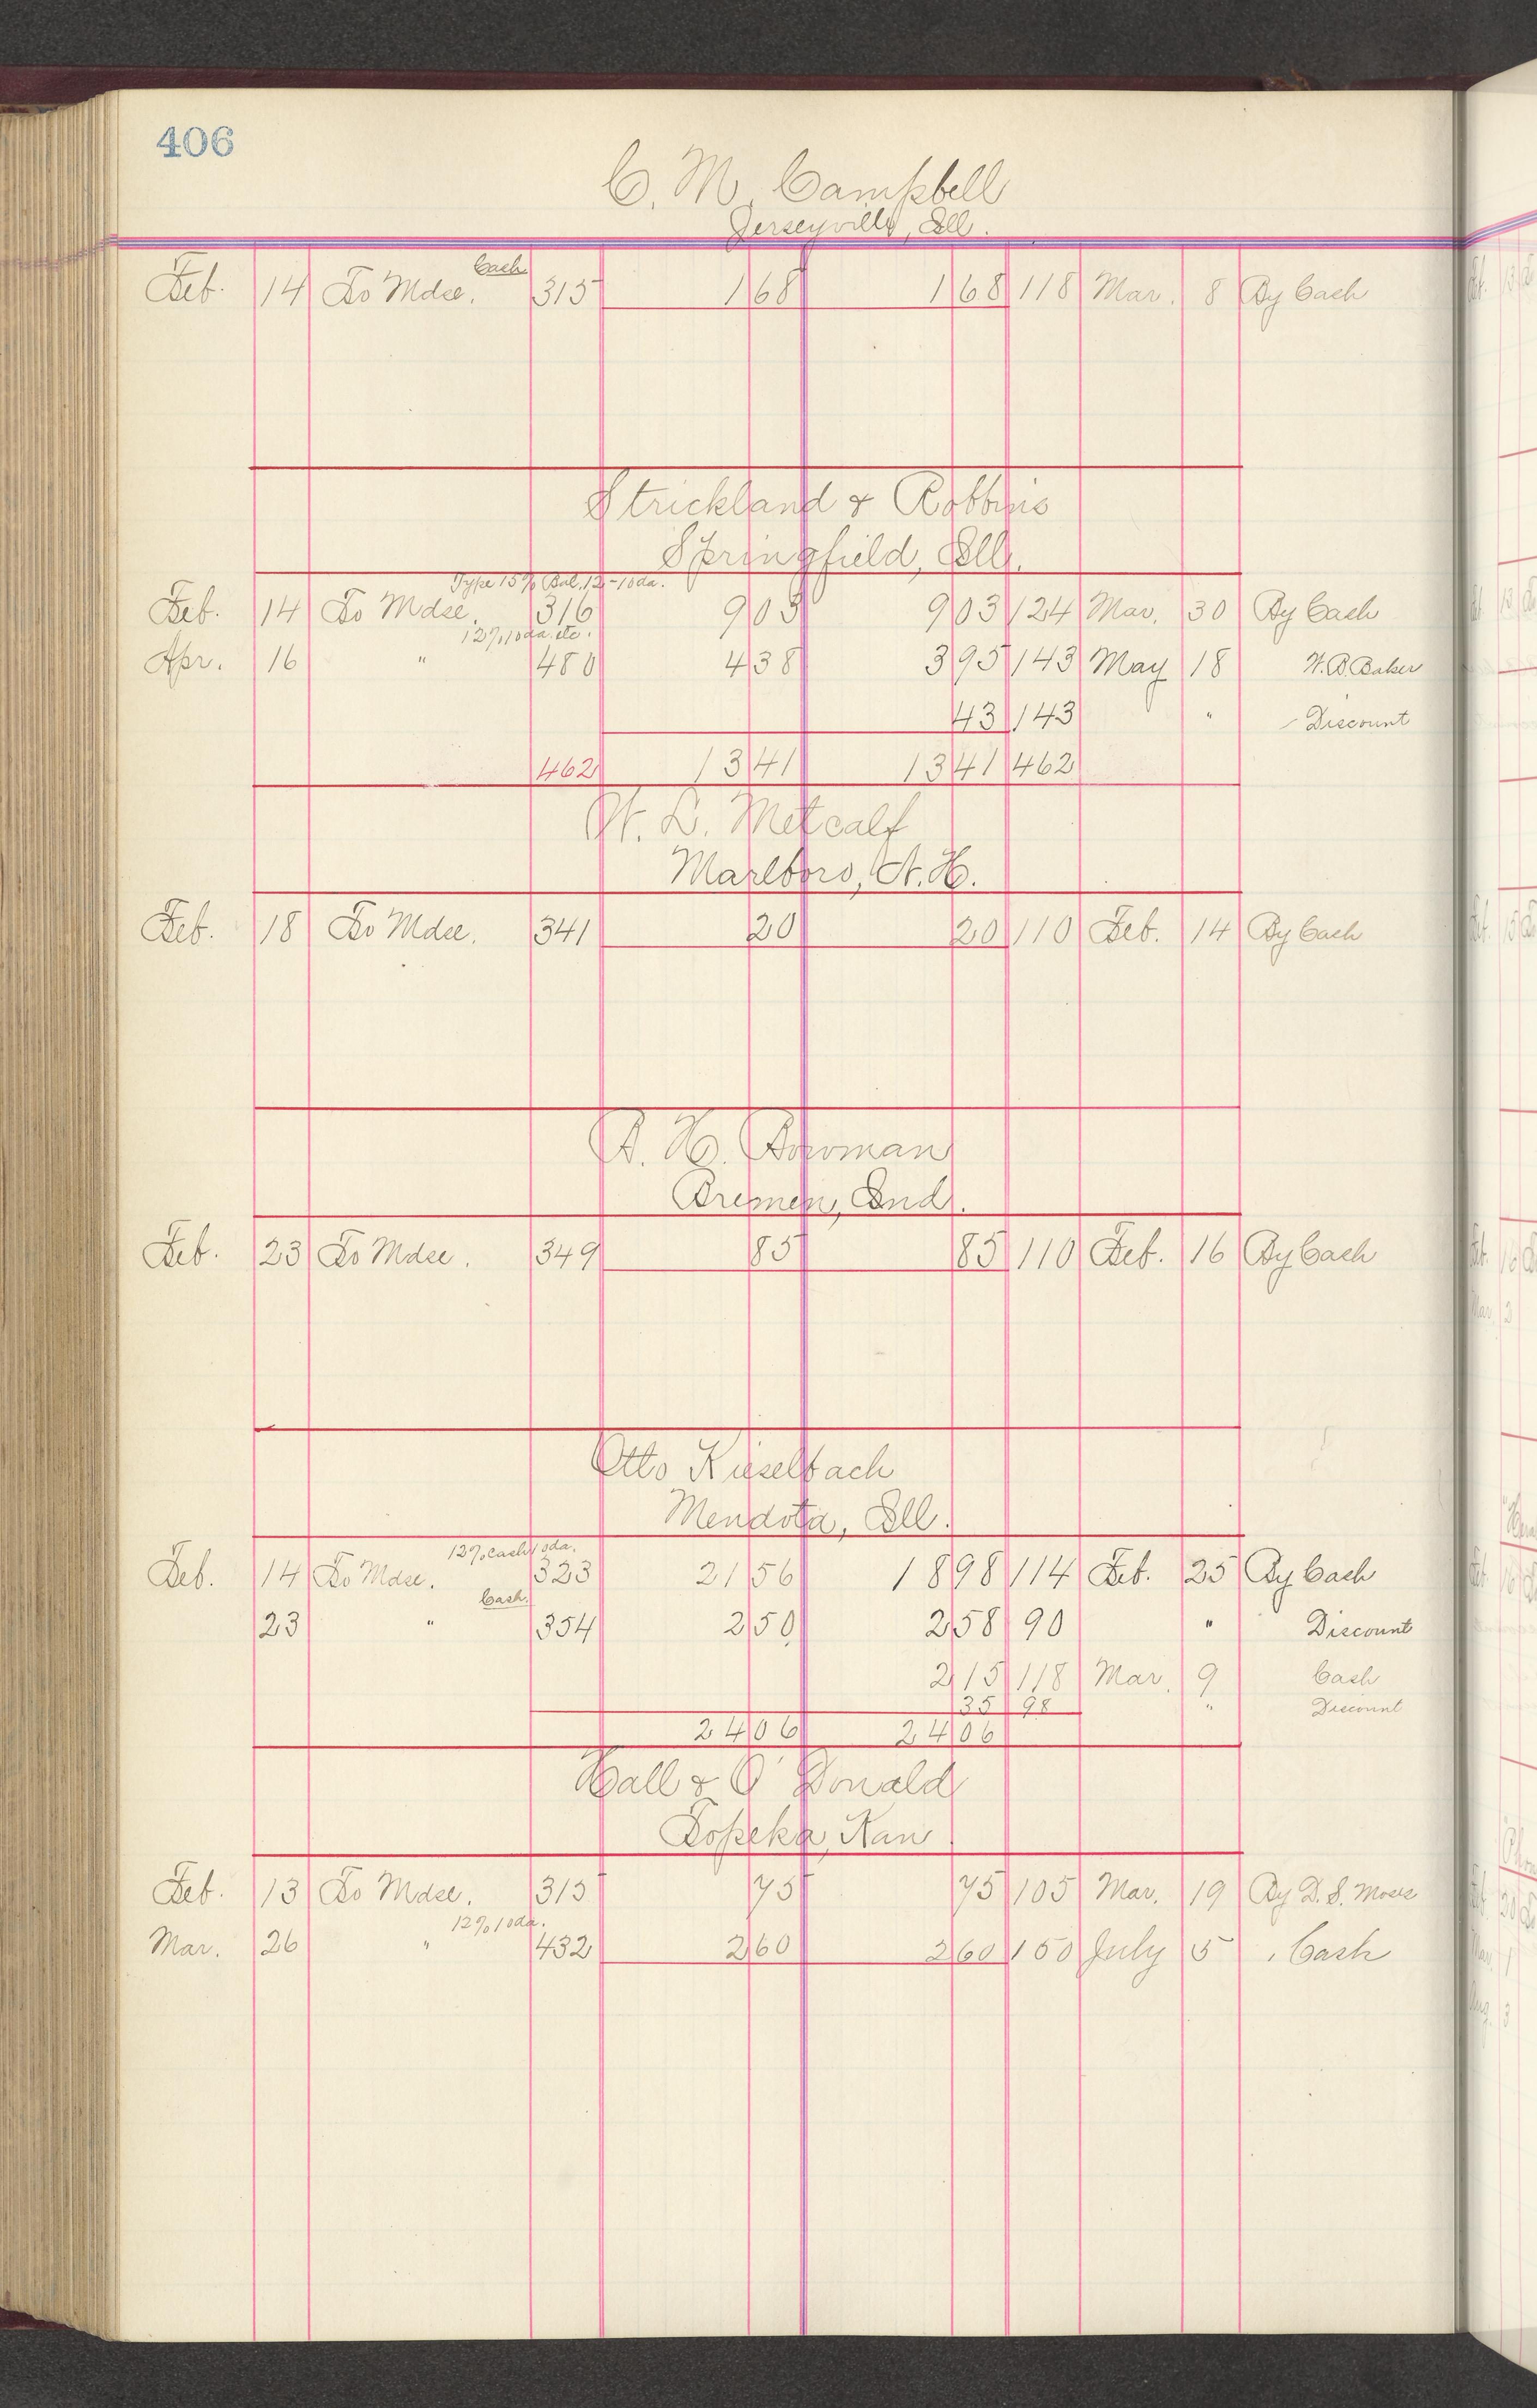 406
C. M. Campbell
Jerseyville, Ill.
Cash
Feb. 14 To Mdse. 315 1 68 1 68 118 Mar. 8 By Cash
Strickland & Robbins
Springfield, Ill.
Type 15% Bal. 12-10da.
Feb. 14 To Mdse. 316 9 03 9 03 124 Mar. 30 By Cash
12% 10da. etc.
Apr. 16 " 480 4 38 3 95 143 May 18 W. B. Baker
43 143 " Discount
462 13 41 13 41 462
W. L. Metcalf
Marlboro, N. H.
Feb. 18 To Mdse. 341 20 20 110 Feb. 14 By Cash
Bowman
Bremen, Ind.
Feb. 23 To Mdse. 349 85 85 110 Feb. 16 By Cash
Otto Kieselbach
Mendota, Ill.
12% cash 10da.
Feb. 14 To Mdse. 323 21 56 18 98 114 Feb. 25 By Cash
Cash.
23 " 354 2 50 2 58 90 " Discount
2 15 118 Mar. 9 Cash
35 98 " Discount
24 06 24 06
Hall & O'Donald
Topeka, Kan.
Feb. 13 To Mdse. 313 75 75 105 Mar. 19 By D. S. Moses
12% 10da.
Mar. 26 " 432 2 60 2 60 150 July 5 Cash